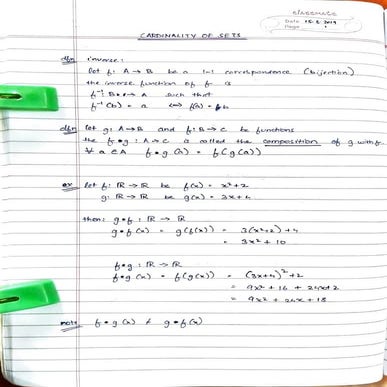 classmate
Date 15.2.2019
Page
CARDINALITY OF SETS
dfn inverse:
let f: A→B be a 1-1 correspondence (bijection)
the inverse function of f is
f⁻¹: B→A such that
f⁻¹(b) = a ⟺ f(a) = b
dfn let g: A→B and f: B→C be functions
the f∘g: A→C is called the composition of g with f
∀ a∈A f∘g(a) = f(g(a))
ex let f: ℝ→ℝ be f(x) = x²+2
g: ℝ→ℝ be g(x) = 3x+4
then: g∘f: ℝ→ℝ
g∘f(x) = g(f(x)) = 3(x²+2)+4
= 3x²+10
f∘g: ℝ→ℝ
f∘g(x) = f(g(x)) = (3x+4)²+2
= 9x²+16+24x+2
= 9x²+24x+18
note f∘g(x) ≠ g∘f(x)